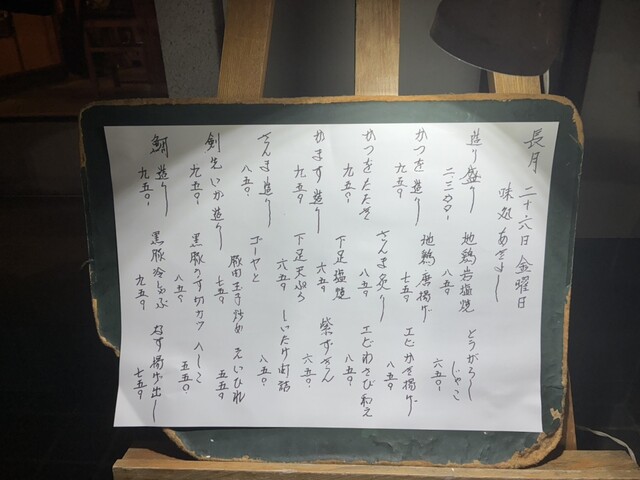 長月 二十六日 金曜日
味処 あきよし
造り盛り
二、三〇〇、
地鶏岩塩焼
八五〇
とうがらし
じゃこ
六五〇、
かつを造り
九五〇
地鶏唐揚げ
七五〇
エビかき揚げ
八五〇
かつをたたき
九五〇
さんま炙り
八五〇
エビわさび和え
八五〇
かます造り
九五〇
下足塩焼
六五〇
紫ずきん
六五〇、
さんま造り
八五〇、
下足天ぷら
六五〇
しいたけ肉詰
八五〇
剣先いか造り
九五〇、
ゴーヤと
豚肉玉子炒め
七五〇
えいひれ
五五〇
鯛造り
九五〇、
黒豚うすカツ
八五〇
へしこ
五五〇
黒豚冷しゃぶ
九五〇
なす揚げ出し
七五〇